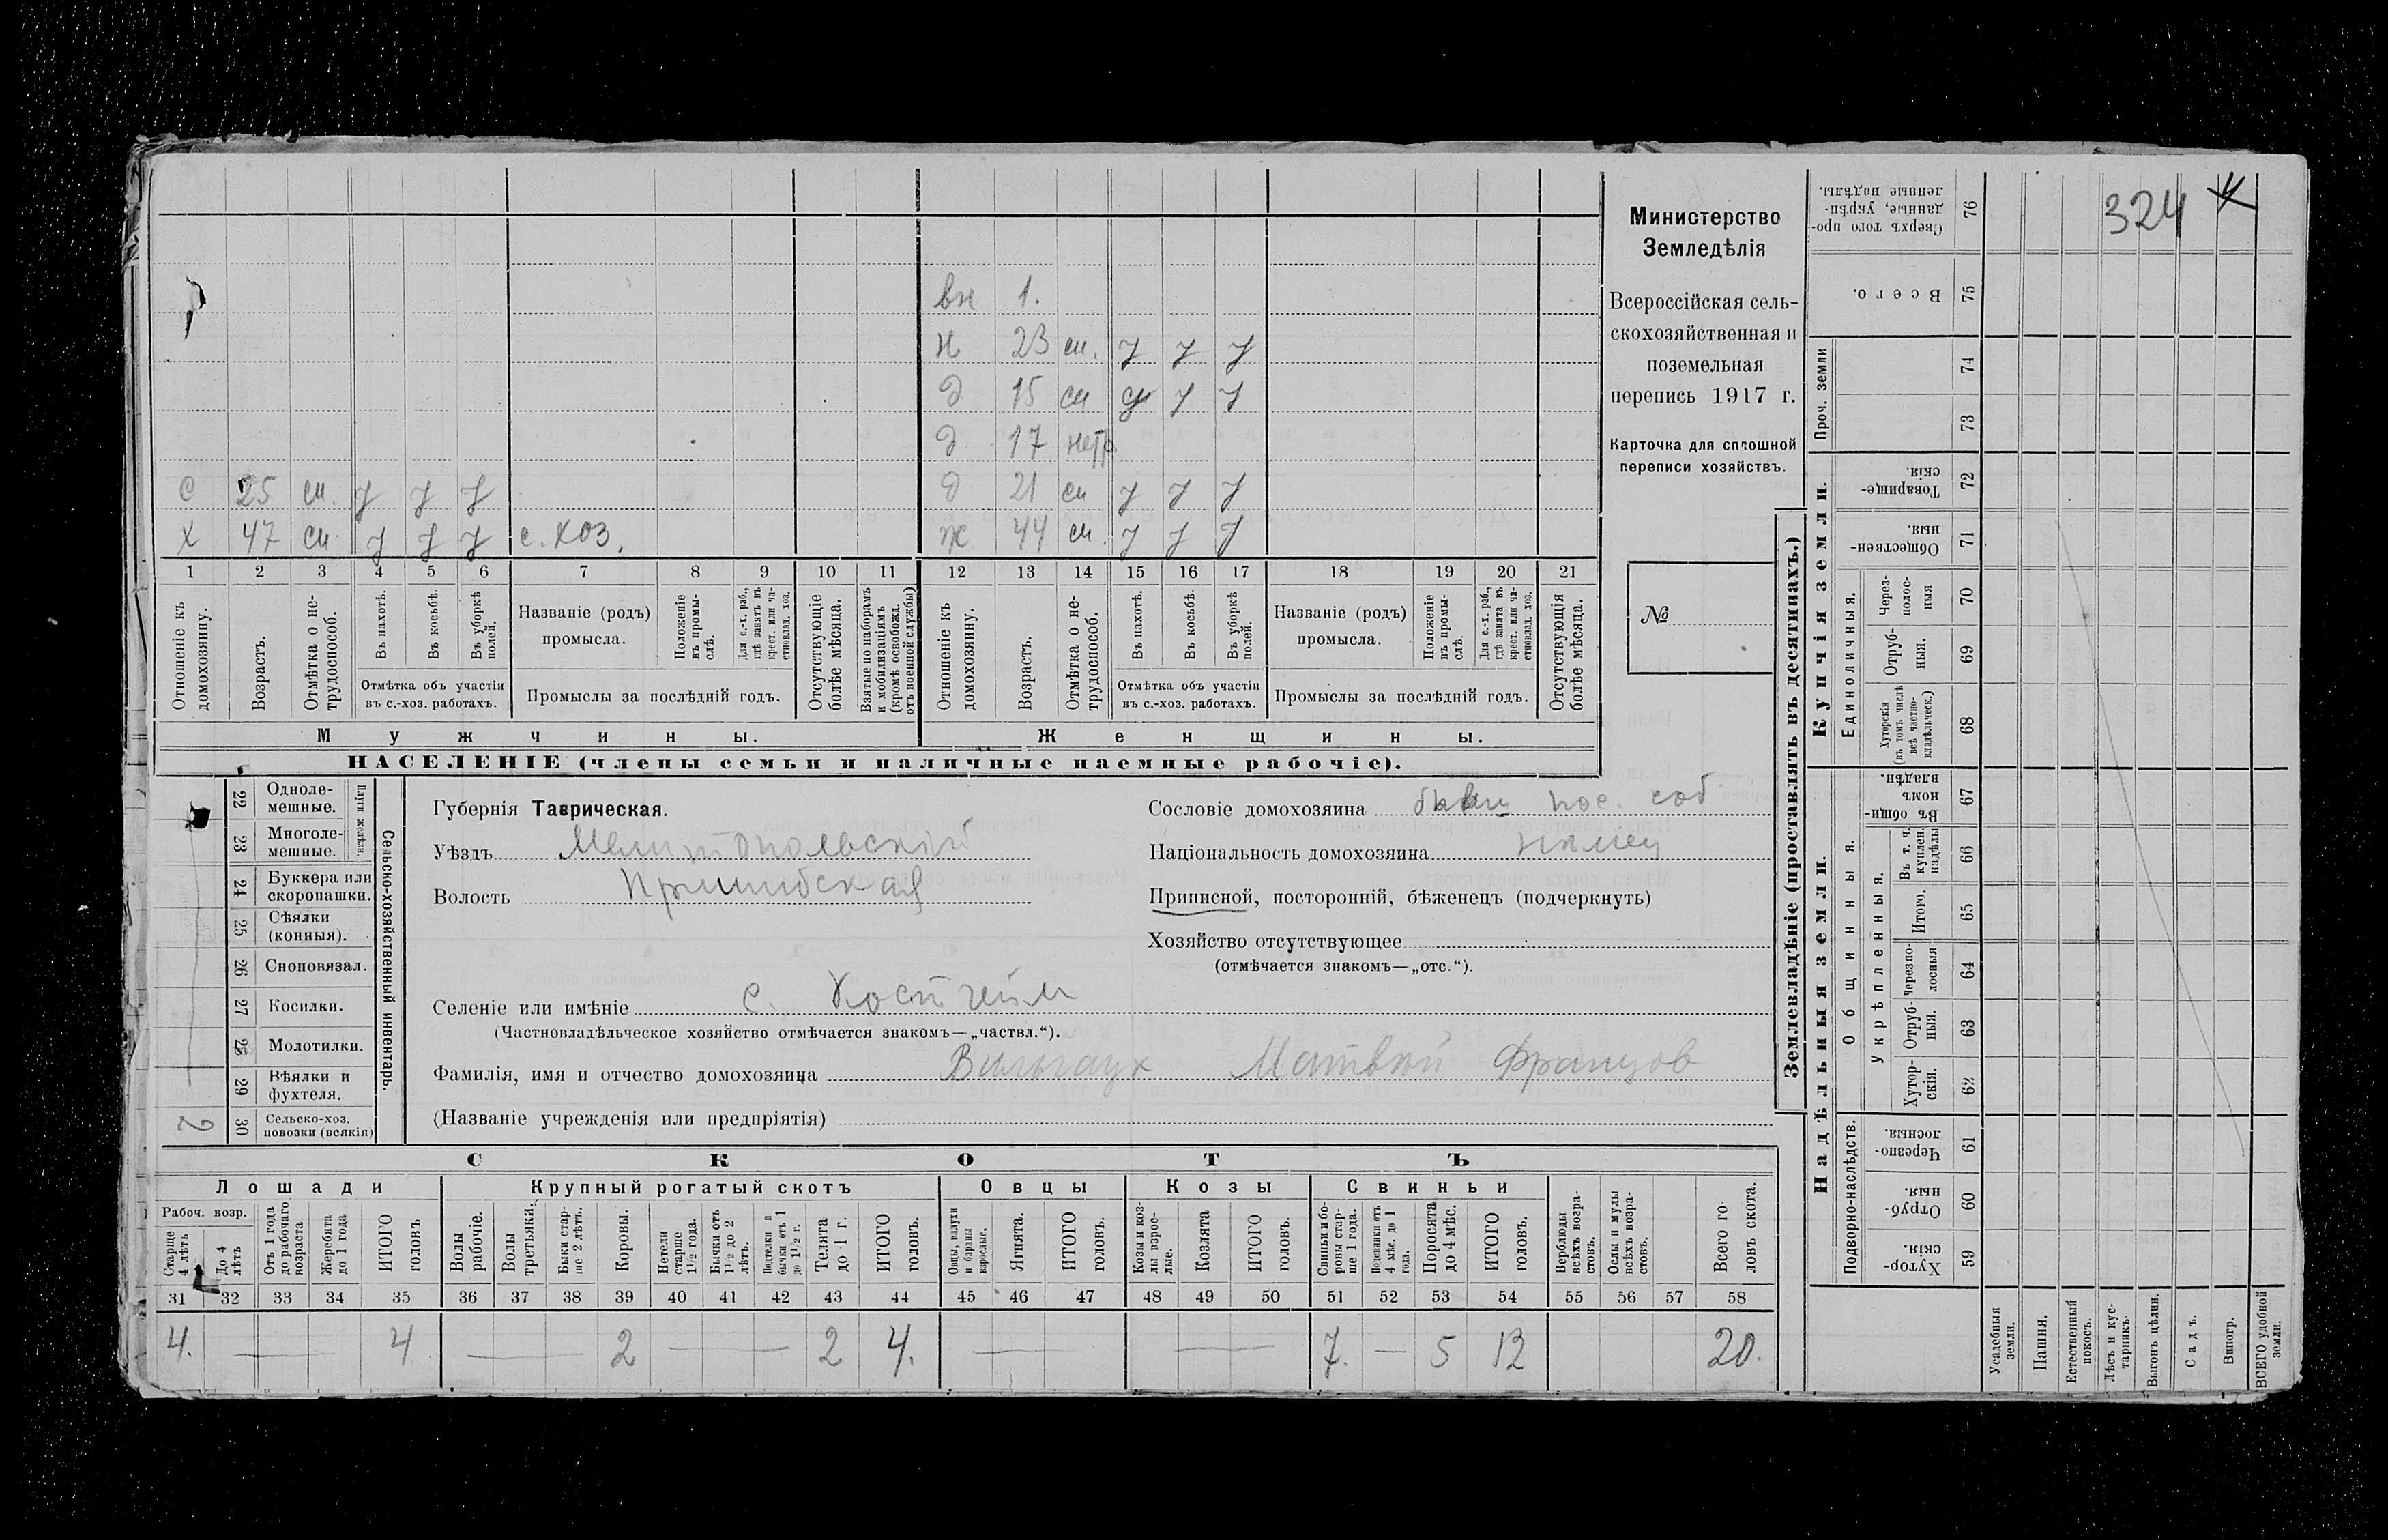 324
вн 1.
н 23 сп. у у у
д 15 сп у у у
д 17 нетр.
с 25 сп. у у у
д 21 сп у у у
х 47 сп у у у с. хоз.
ж 44 сп. у у у
1 2 3 4 5 6 7 8 9 10 11 12 13 14 15 16 17 18 19 20 21
Отношеніе къ домохозяину.
Возрастъ.
Отмѣтка о не-
трудоспособ.
Въ пахотѣ.
Въ косьбѣ.
Въ уборкѣ
полей.
Отмѣтка объ участіи
въ с.-хоз. работахъ.
Названіе (родъ)
промысла.
Положеніе
въ промы-
слѣ.
Для с.-х. раб.,
гдѣ занятъ въ
крест. или ча-
стновлад. хоз.
Промыслы за послѣдній годъ.
Отсутствующіе
болѣе мѣсяца.
Взятые по наборамъ
и мобилизаціямъ
(кромѣ освобожд.
отъ военной службы)
Отношеніе къ
домохозяину.
Возрастъ.
Отмѣтка о не-
трудоспособ.
Въ пахотѣ.
Въ косьбѣ.
Въ уборкѣ
полей.
Отмѣтка объ участіи
въ с.-хоз. работахъ.
Названіе (родъ)
промысла.
Положеніе
въ промы-
слѣ.
Для с.-х. раб.,
гдѣ занята въ
крест. или ча-
стновлад. хоз.
Промыслы за послѣдній годъ.
Отсутствующія
болѣе мѣсяца.
Мужчины.
Женщины.
НАСЕЛЕНІЕ (члены семьи и наличные наемные рабочіе).
Министерство
Земледѣлія
Всероссійская сель-
скохозяйственная и
поземельная
перепись 1917 г.
Карточка для сплошной
переписи хозяйствъ.
№
22 Одноле-
мешные.
23 Многоле-
мешные.
Плуги желѣзн.
24 Буккера или
скоропашки.
25 Сѣялки
(конныя).
26 Сноповязал.
27 Косилки.
28 Молотилки.
29 Вѣялки и
фухтеля.
2 30 Сельско-хоз.
повозки (всякія)
Сельско-хозяйственный инвентарь.
Губернія Таврическая.
Уѣздъ Мелитопольскій
Волость Пришибская
Сословіе домохозяина бывш пос. соб
Національность домохозяина нѣмец
Приписной, посторонній, бѣженецъ (подчеркнуть)
Хозяйство отсутствующее
(отмѣчается знакомъ—„отс.“).
Селеніе или имѣніе с. Костгейм
(Частновладѣльческое хозяйство отмѣчается знакомъ—„частвл.“).
Фамилія, имя и отчество домохозяина Вильгаук Матвѣй Францов
(Названіе учрежденія или предпріятія)
СКОТЪ
Лошади
Крупный рогатый скотъ
Овцы
Козы
Свиньи
Рабоч. возр.
Старше
4 лѣтъ
До 4
лѣтъ
Отъ 1 года
до рабочаго
возраста
Жеребята
до 1 года
ИТОГО
головъ
Волы
рабочіе.
Волы
третьяки.
Быки стар-
ше 2 лѣтъ.
Коровы.
Нетели
старше
1½ года.
Бычки отъ
1½ до 2
лѣтъ.
Подтелки и
бычки отъ 1
до 1½ г.
Телята
до 1 г.
ИТОГО
головъ.
Овцы, валухи
и бараны
взрослые.
Ягнята.
ИТОГО
головъ.
Козы и коз-
лы взрос-
лые.
Козлята
ИТОГО
головъ.
Свиньи и бо-
ровы стар-
ше 1 года.
Подсвинки отъ
4 мѣс. до 1
года.
Поросята
до 4 мѣс.
ИТОГО
головъ.
Верблюды
всѣхъ возра-
стовъ.
Ослы и мулы
всѣхъ возра-
стовъ.
Всего го-
ловъ скота.
31 32 33 34 35 36 37 38 39 40 41 42 43 44 45 46 47 48 49 50 51 52 53 54 55 56 57 58
4. — 4 — 2 — 2 4. — — 7. — 5 12 20.
Землевладѣніе (проставлять въ десятинахъ.)
Надѣльныя земли.
Купчія земли.
Проч. земли
Подворно-наслѣдств.
Общинныя.
Укрѣпленныя.
Единоличныя.
Сверхъ того про-
данные, укрѣп-
ленные надѣлы. 76
Всего. 75
74
73
Товарище-
скія. 72
Обществен-
ныя. 71
Через-
полос-
ныя 70
Отруб-
ныя. 69
Хуторскія
(въ томъ числѣ
всѣ частно-
владѣльческ.) 68
Въ общин-
номъ
владѣн. 67
Въ т. ч.
куплен.
надѣлы 66
Итого. 65
Черезпо-
лосныя 64
Отруб-
ныя. 63
Хутор-
скія. 62
Черезпо-
лосныя. 61
Отруб-
ныя. 60
Хутор-
скія. 59
Усадебныя
земли.
Пашня.
Естественный
покосъ.
Лѣсъ и кус-
тарникъ.
Выгонъ цѣлин.
Садъ.
Виногр.
ВСЕГО удобной
земли.